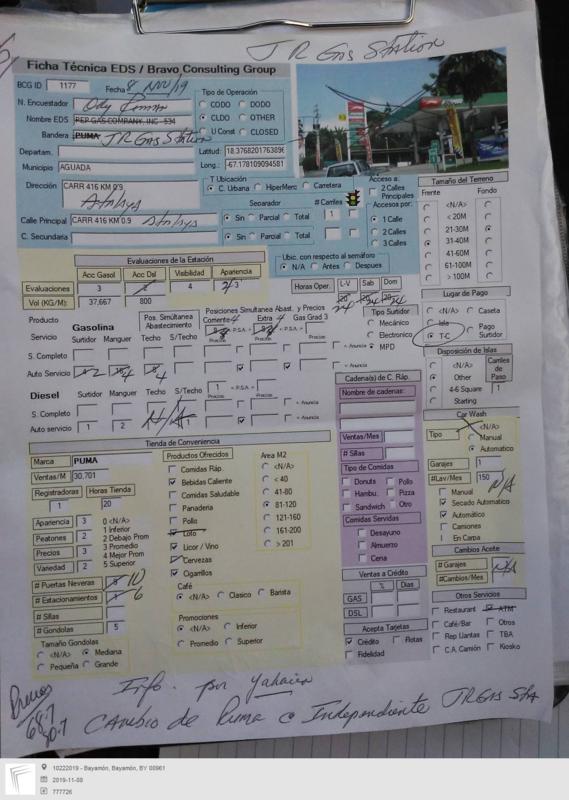 JR Gas Station
Ficha Técnica EDS / Bravo Consulting Group
BCG ID 1177 Fecha 8 Nov/19
N. Encuestador
Nombre EDS PEP GAS COMPANY, INC - 534
Bandera PUMA JR Gas Station
Departam.
Municipio AGUADA
Tipo de Operación
CODO DODO
CLDO OTHER
U Const CLOSED
Latitud: 18.3768201763896
Long.: -67.178109094581
Dirección CARR 416 KM 0.9
Calle Principal CARR 416 KM 0.9
C. Secundaria
T Ubicación
C. Urbana HiperMerc Carretera
Separador # Carriles
Sin Parcial Total 1
Sin Parcial Total
Acceso a:
2 Calles Principales
Accesos por:
1 Calle
2 Calles
3 Calles
Tamaño del Terreno
Frente Fondo
<N/A>
< 20M
21-30M
31-40M
41-60M
61-100M
> 100M
Evaluaciones de la Estación
Acc Gasol Acc Dsl Visibilidad Apariencia
Evaluaciones 3 2 4 3
Vol (KG/M): 37,667 800
Ubic. con respecto al semáforo
N/A Antes Despues
Horas Oper. L-V Sab Dom
24 24 24
Lugar de Pago
<N/A> Caseta
Isla
T-C Pago Surtidor
Producto
Gasolina
Pos. Simultanea Abastecimiento
Posiciones Simultanea Abast. y Precios
Corriente Extra Gas Grad 3
Servicio Surtidor Manguer Techo S/Techo
S. Completo
Auto Servicio
Tipo Surtidor
Mecánico
Electronico
MPD
Disposición de Islas
<N/A>
Other
4-6 Square
Starting
Carriles de Paso
1
Diesel
Surtidor Manguer Techo S/Techo
S. Completo
Auto servicio 1 2 N/A
Cadena(s) de C. Ráp.
Nombre de cadenas:
Ventas/Mes
# Sillas
Tipo de Comidas
Donuts Pollo
Hambu. Pizza
Sandwich Otro
Comidas Servidas
Desayuno
Almuerzo
Cena
Ventas a Crédito
% Dias
GAS
DSL
Acepta Tarjetas
Crédito Flotas
Fidelidad
Car Wash
Tipo <N/A>
Manual
Automatico
Garajes 1
#Lav/Mes 150 N/A
Manual
Secado Automatico
Automático
Camiones
En Carpa
Cambios Aceite
# Garajes
#Cambios/Mes N/A
Otros Servicios
Restaurant ATM
Café/Bar Otros
Rep Llantas TBA
C.A. Camión Kiosko
Tienda de Conveniencia
Marca PUMA
Ventas/M 30,701
Registradoras Horas Tienda
1 20
Apariencia 3
Peatones 2
Precios 3
Variedad 2
0 <N/A>
1 Inferior
2 Debajo Prom
3 Promedio
4 Mejor Prom
5 Superior
# Puertas Neveras 10
# Estacionamientos 6
# Sillas
# Gondolas 5
Tamaño Gondolas
<N/A> Mediana
Pequeña Grande
Productos Ofrecidos
Comidas Ráp.
Bebidas Caliente
Comidas Saludable
Panaderia
Pollo
Loto
Licor / Vino
Cervezas
Cigarrillos
Café
<N/A> Clasico Barista
Promociones
<N/A> Inferior
Promedio Superior
Area M2
<N/A>
< 40
41-80
81-120
121-160
161-200
> 201
Info. por Yahaira
Cambio de Puma a Independiente JR Gas Sta
Precios
68.7
70.7
10222019 - Bayamón, Bayamón, BY 00961
2019-11-08
777726